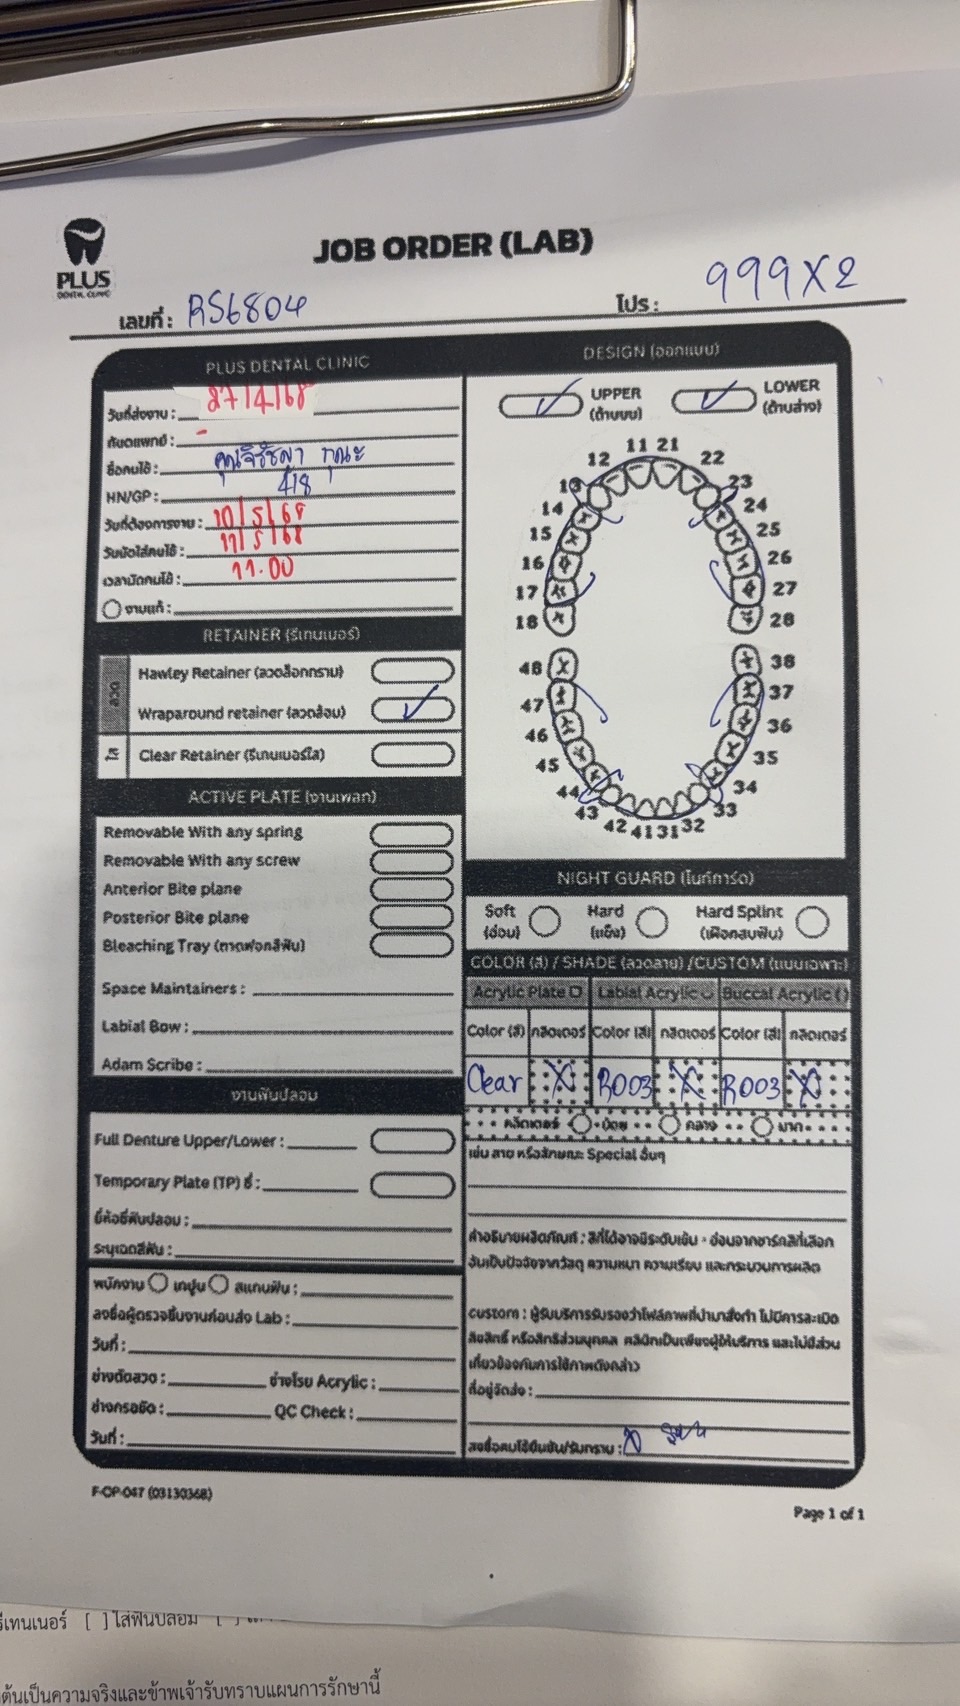 PLUS
DENTAL CLINIC
JOB ORDER (LAB)
เลขที่ : RS6804
โปร : 999X2
PLUS DENTAL CLINIC
วันที่ส่งงาน : 27/4/68
ทันตแพทย์ : -
ชื่อคนไข้ : คุณจิรัชญา
HN/GP : 418
วันที่ต้องการงาน : 10/5/68
วันนัดใส่คนไข้ : 11/5/68
เวลานัดคนไข้ : 11.00
งานแก้ :
RETAINER (รีเทนเนอร์)
ลวด
Hawley Retainer (ลวดล็อกกราม)
Wraparound retainer (ลวดล้อม)
ใส
Clear Retainer (รีเทนเนอร์ใส)
ACTIVE PLATE (งานเพลท)
Removable With any spring
Removable With any screw
Anterior Bite plane
Posterior Bite plane
Bleaching Tray (ถาดฟอกสีฟัน)
Space Maintainers :
Labial Bow :
Adam Scribe :
งานฟันปลอม
Full Denture Upper/Lower :
Temporary Plate (TP) ซี่ :
ยี่ห้อซี่ฟันปลอม :
ระบุเฉดสีฟัน :
พนักงาน เทปูน สแกนฟัน :
ลงชื่อผู้ตรวจชิ้นงานก่อนส่ง Lab :
วันที่ :
ช่างดัดลวด : ช่างโรย Acrylic :
ช่างกรอขัด : QC Check :
วันที่ :
DESIGN (ออกแบบ)
UPPER
(ด้านบน)
LOWER
(ด้านล่าง)
11 21
12 22
13 23
14 24
15 25
16 26
17 27
18 28
48 38
47 37
46 36
45 35
44 34
43 33
42 41 31 32
NIGHT GUARD (ไนท์การ์ด)
Soft
(อ่อน)
Hard
(แข็ง)
Hard Splint
(เฝือกสบฟัน)
COLOR (สี) / SHADE (ลวดลาย) /CUSTOM (แบบเฉพาะ)
Acrylic Plate Labial Acrylic Buccal Acrylic
Color (สี) กลิตเตอร์ Color (สี) กลิตเตอร์ Color (สี) กลิตเตอร์
Clear X R003 X R003 X
กลิตเตอร์ น้อย กลาง มาก
เช่น ลาย หรือลักษณะ Special อื่นๆ
คำอธิบายผลิตภัณฑ์ : สีที่ได้อาจมีระดับเข้ม - อ่อนจากชาร์คสีที่เลือก
อันเป็นปัจจัยจากวัสดุ ความหนา ความเรียบ และกระบวนการผลิต
custom : ผู้รับบริการรับรองว่าไฟล์ภาพที่นำมาสั่งทำ ไม่มีการละเมิด
ลิขสิทธิ์ หรือสิทธิส่วนบุคคล คลินิกเป็นเพียงผู้ให้บริการ และไม่มีส่วน
เกี่ยวข้องกับการใช้ภาพดังกล่าว
ที่อยู่จัดส่ง :
ลงชื่อคนไข้ยืนยัน/รับทราบ : X
F-OP-047 (03130368)
Page 1 of 1
รีเทนเนอร์ [ ] ใส่ฟันปลอม [ ]
ต้นเป็นความจริงและข้าพเจ้ารับทราบแผนการรักษานี้